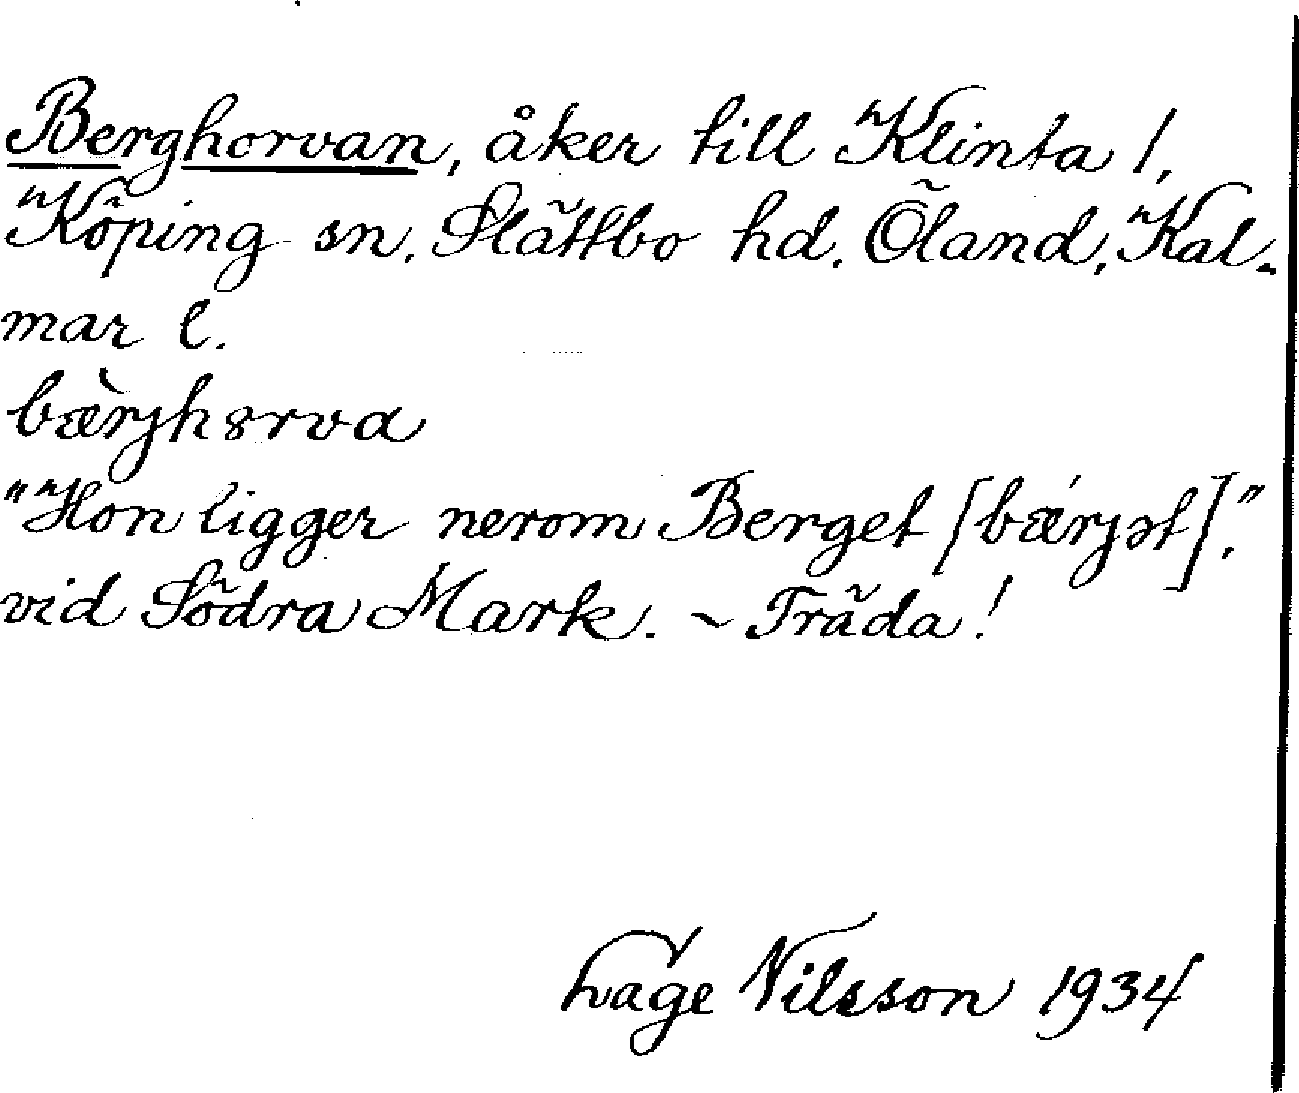 Berghorvan, åker till Klinta 1,
Köping sn. Slättbo hd. Öland, Kal-
mar l.
bærjhorva
"Hon ligger nerom Berget [bærjət]."
vid Södra Mark. - Träda!
Lage Nilsson 1934